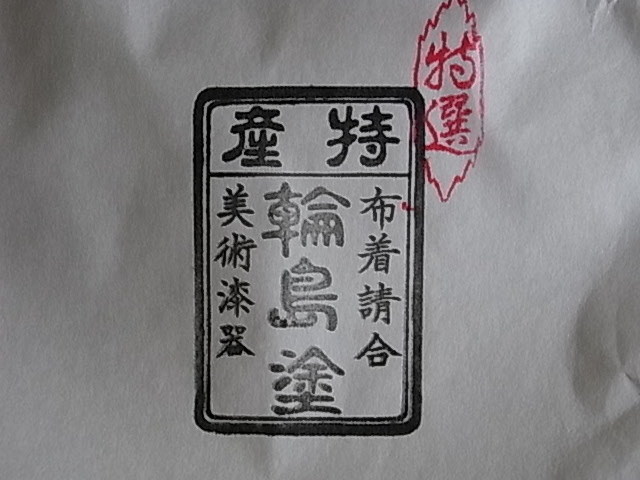 特選
特産
布着請合
輪島塗
美術漆器